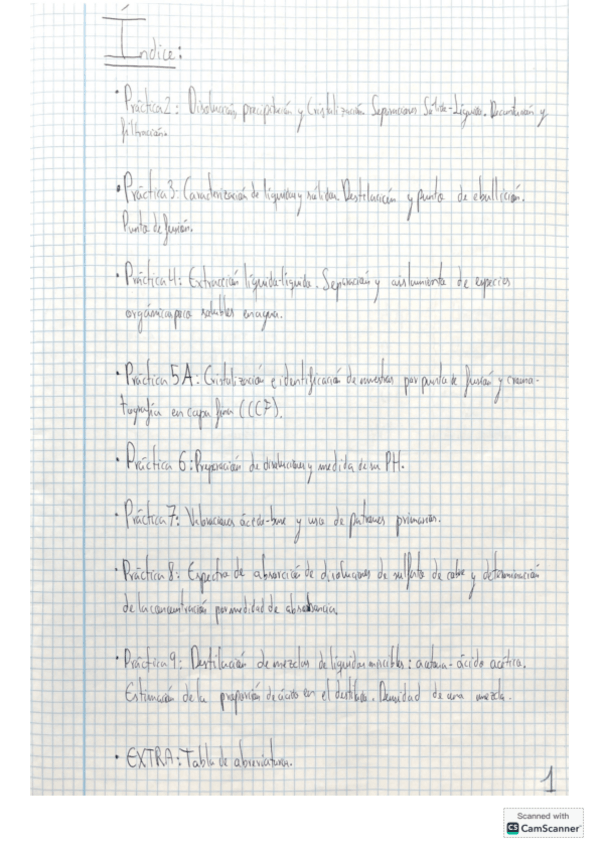 Índice:
• Práctica 2: Disolución, precipitación y Cristalización Separaciones Sólido-Líquido. Decantación y
filtración.
• Práctica 3: Caracterización de líquidos y sólidos. Destilación y punto de ebullición.
Punto de fusión.
• Práctica 4: Extracción líquido-líquido. Separación y aislamiento de especies
orgánicas poco solubles en agua.
• Práctica 5A: Cristalización e identificación de muestras por punto de fusión y croma-
tografía en capa fina (CCF).
• Práctica 6: Preparación de disoluciones y medida de su PH.
• Práctica 7: Valoraciones ácido-base y uso de patrones primarios.
• Práctica 8: Espectro de absorción de disoluciones de sulfato de cobre y determinación
de la concentración por medidad de absorbancia.
• Práctica 9: Destilación de mezclas de líquidos miscibles: acetona-ácido acético.
Estimación de la proporción de ácido en el destilado. Densidad de una mezcla.
• EXTRA: Tabla de abreviaturas.
1
Scanned with
CS CamScanner